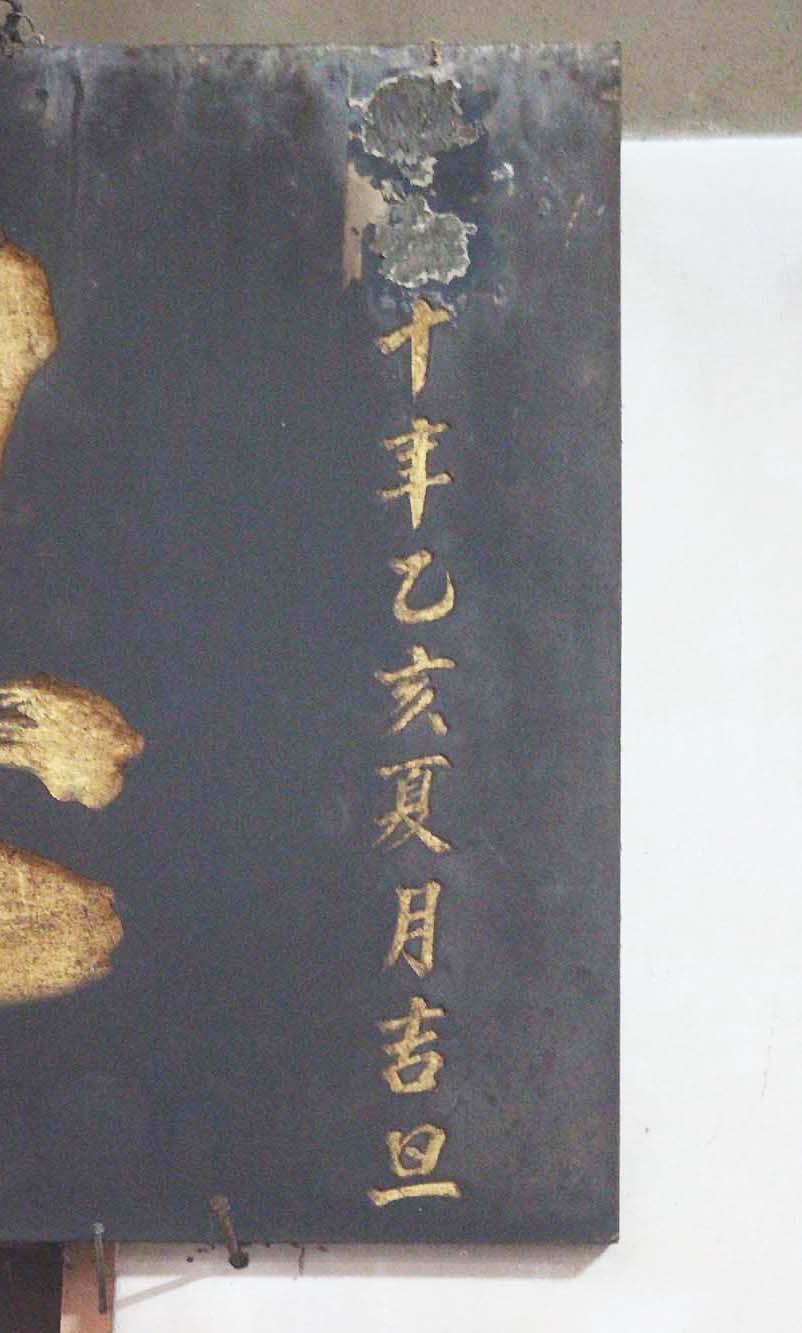 十年乙亥夏月吉旦